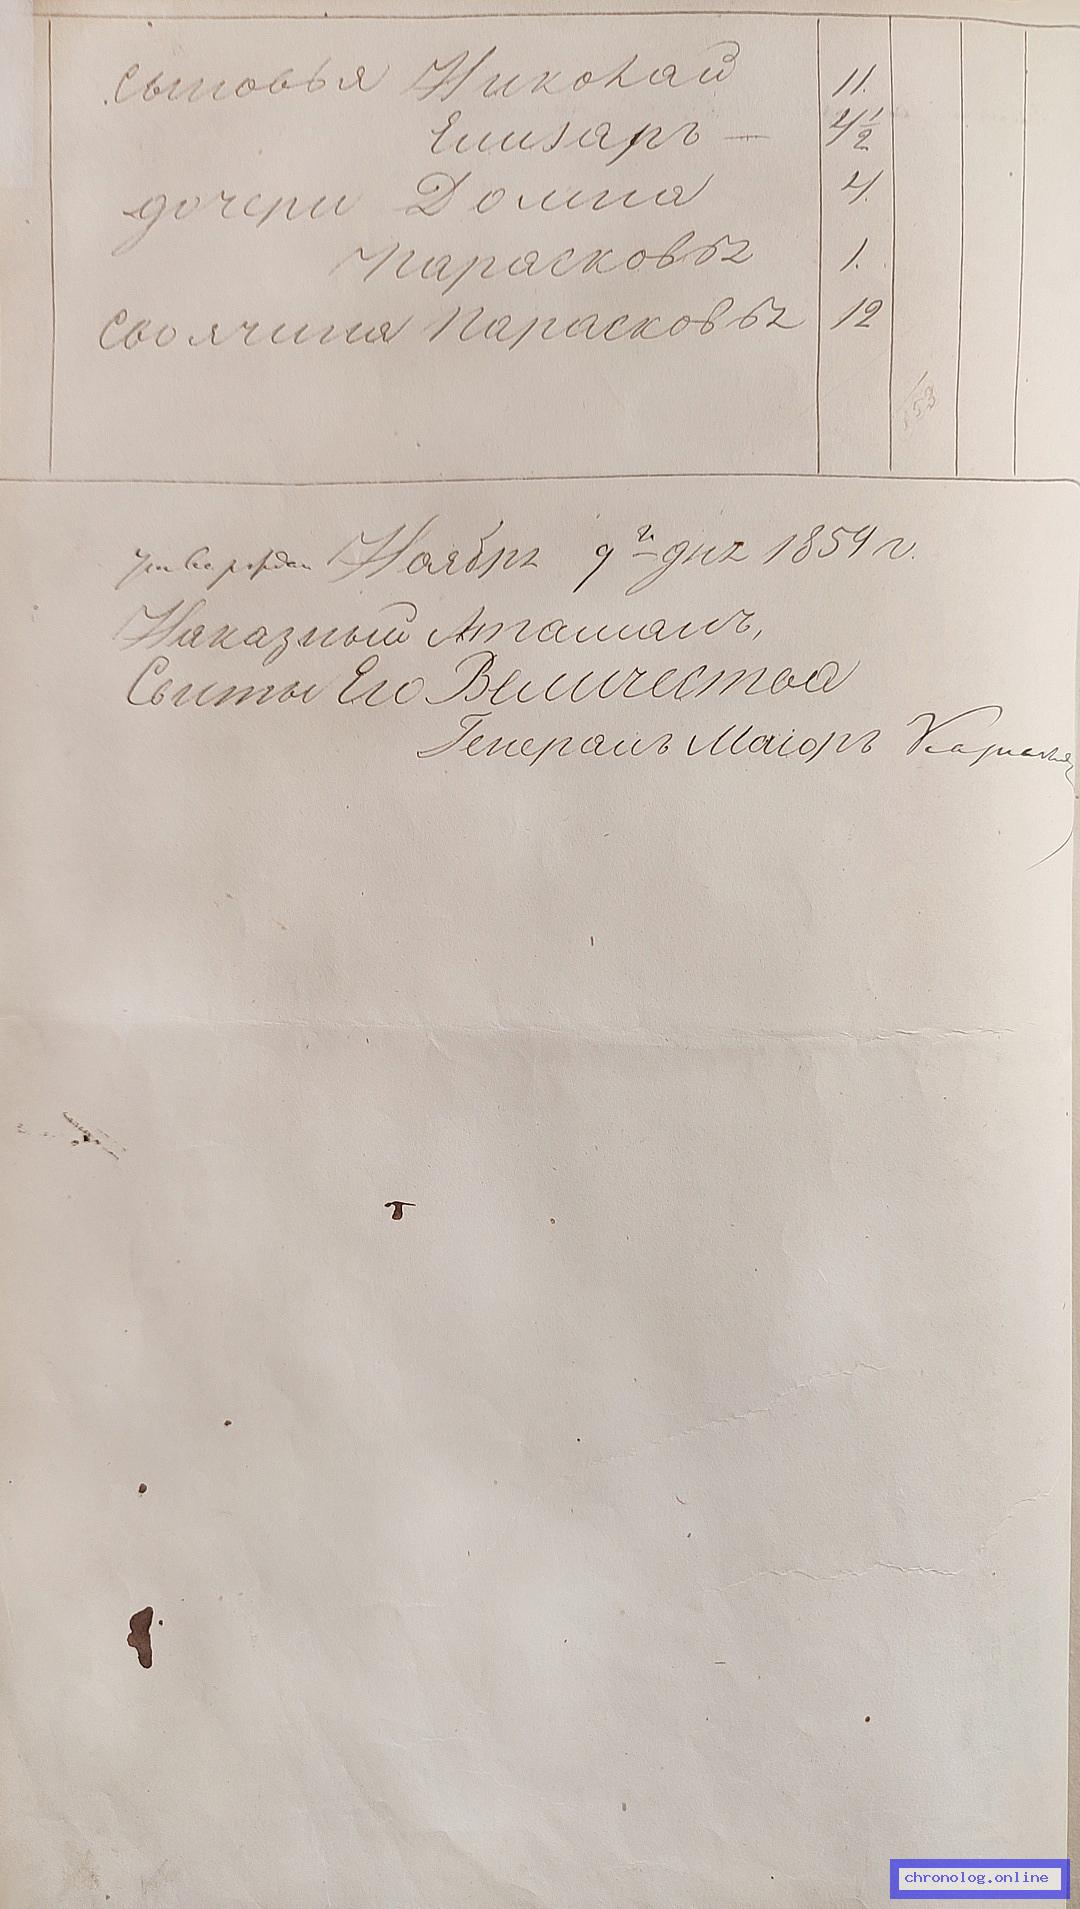 сыновья Николай 11.
Елизаръ — 4 1/2
дочери Домна 4.
Парасковья 1.
Своячина Парасковья 12
153
Ноября 9го дня 1859 г.
Наказный Атаманъ,
Свиты Его Величества
Генералъ Маіоръ
chronolog.online